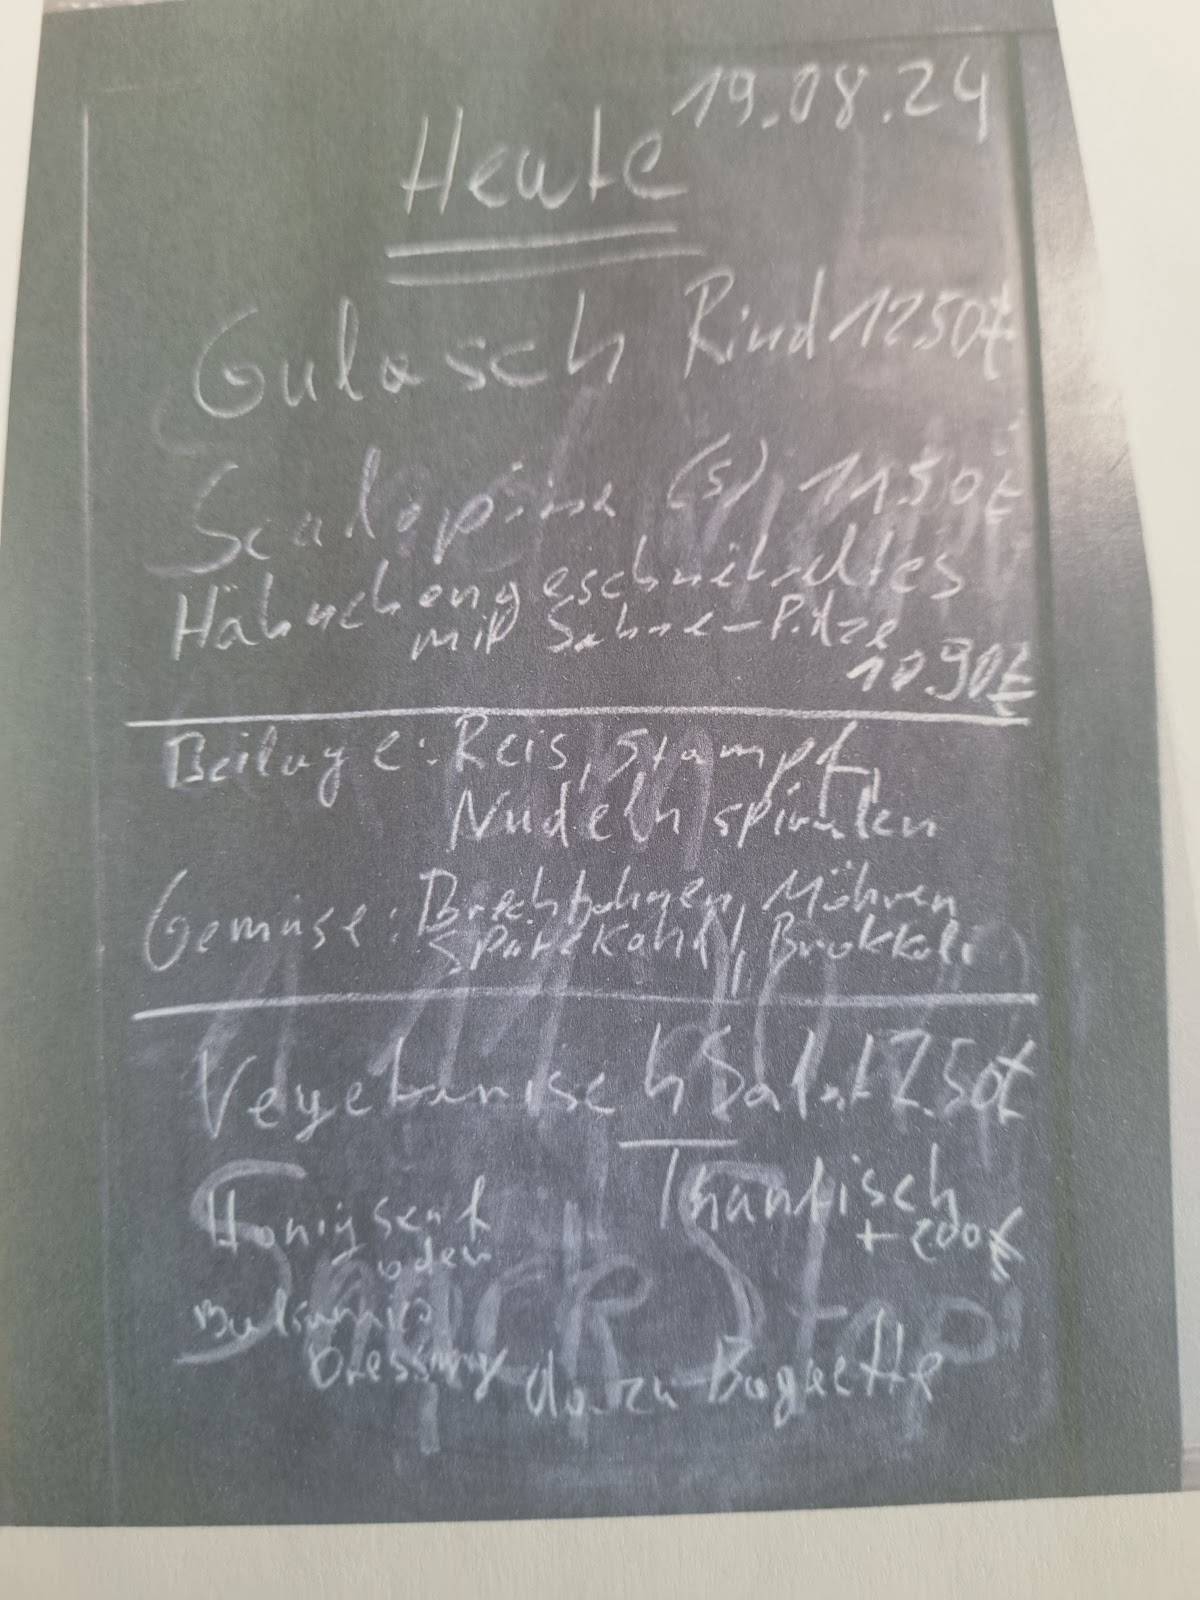 19.08.24
Heute
Gulasch Rind 12.50€
Scalopine (S) 11.50€
Hähnchengeschnetzeltes
mit Sahne-Pilze
10.90€
Beilage: Reis, Stampf,
Nudeln spiralen
Gemüse: Brechbohnen, Möhren
Spitzkohl, Brokkoli
Vegetarisch Salat 7.50€
Honigsenf Thunfisch
oder + 2.00€
Balsamico
Dressing dazu Baguette
Snack Stop